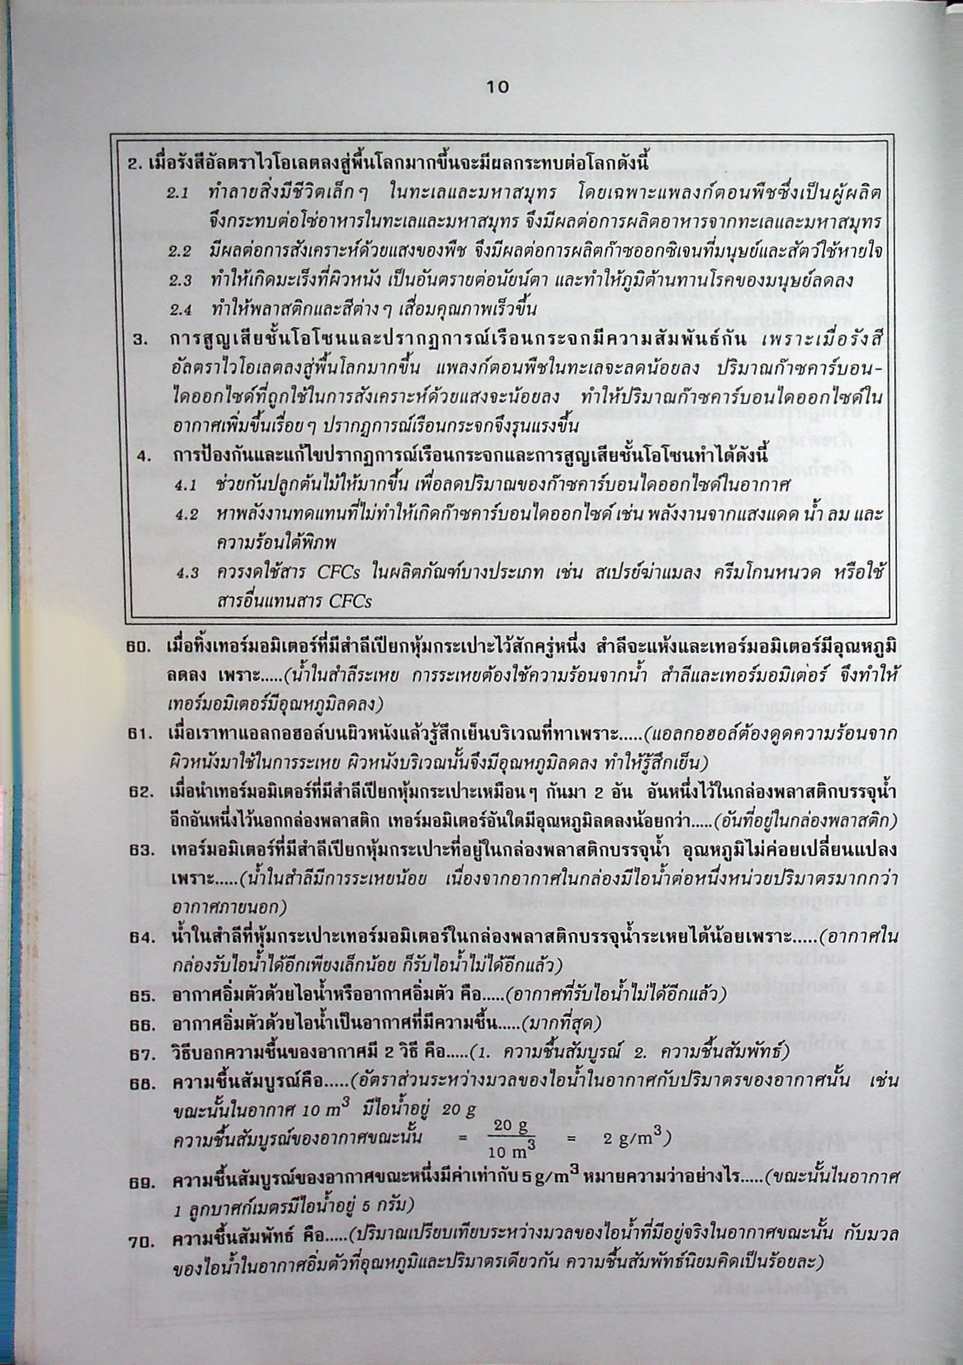 10
2. เมื่อรังสีอัลตราไวโอเลตลงสู่พื้นโลกมากขึ้นจะมีผลกระทบต่อโลกดังนี้
2.1 ทำลายสิ่งมีชีวิตเล็กๆ ในทะเลและมหาสมุทร โดยเฉพาะแพลงก์ตอนพืชซึ่งเป็นผู้ผลิต
จึงกระทบต่อโซ่อาหารในทะเลและมหาสมุทร จึงมีผลต่อการผลิตอาหารจากทะเลและมหาสมุทร
2.2 มีผลต่อการสังเคราะห์ด้วยแสงของพืช จึงมีผลต่อการผลิตก๊าซออกซิเจนที่มนุษย์และสัตว์ใช้หายใจ
2.3 ทำให้เกิดมะเร็งที่ผิวหนัง เป็นอันตรายต่อนัยน์ตา และทำให้ภูมิต้านทานโรคของมนุษย์ลดลง
2.4 ทำให้พลาสติกและสีต่างๆ เสื่อมคุณภาพเร็วขึ้น
3. การสูญเสียชั้นโอโซนและปรากฏการณ์เรือนกระจกมีความสัมพันธ์กัน เพราะเมื่อรังสี
อัลตราไวโอเลตลงสู่พื้นโลกมากขึ้น แพลงก์ตอนพืชในทะเลจะลดน้อยลง ปริมาณก๊าซคาร์บอน-
ไดออกไซด์ที่ถูกใช้ในการสังเคราะห์ด้วยแสงจะน้อยลง ทำให้ปริมาณก๊าซคาร์บอนไดออกไซด์ใน
อากาศเพิ่มขึ้นเรื่อยๆ ปรากฏการณ์เรือนกระจกจึงรุนแรงขึ้น
4. การป้องกันและแก้ไขปรากฏการณ์เรือนกระจกและการสูญเสียชั้นโอโซนทำได้ดังนี้
4.1 ช่วยกันปลูกต้นไม้ให้มากขึ้น เพื่อลดปริมาณของก๊าซคาร์บอนไดออกไซด์ในอากาศ
4.2 หาพลังงานทดแทนที่ไม่ทำให้เกิดก๊าซคาร์บอนไดออกไซด์ เช่น พลังงานจากแสงแดด น้ำ ลม และ
ความร้อนใต้พิภพ
4.3 ควรงดใช้สาร CFCs ในผลิตภัณฑ์บางประเภท เช่น สเปรย์ฆ่าแมลง ครีมโกนหนวด หรือใช้
สารอื่นแทนสาร CFCs
60. เมื่อทิ้งเทอร์มอมิเตอร์ที่มีสำลีเปียกหุ้มกระเปาะไว้สักครู่หนึ่ง สำลีจะแห้งและเทอร์มอมิเตอร์มีอุณหภูมิ
ลดลง เพราะ.....(น้ำในสำลีระเหย การระเหยต้องใช้ความร้อนจากน้ำ สำลีและเทอร์มอมิเตอร์ จึงทำให้
เทอร์มอมิเตอร์มีอุณหภูมิลดลง)
61. เมื่อเราทาแอลกอฮอล์บนผิวหนังแล้วรู้สึกเย็นบริเวณที่ทาเพราะ.....(แอลกอฮอล์ต้องดูดความร้อนจาก
ผิวหนังมาใช้ในการระเหย ผิวหนังบริเวณนั้นจึงมีอุณหภูมิลดลง ทำให้รู้สึกเย็น)
62. เมื่อนำเทอร์มอมิเตอร์ที่มีสำลีเปียกหุ้มกระเปาะเหมือนๆ กันมา 2 อัน อันหนึ่งไว้ในกล่องพลาสติกบรรจุน้ำ
อีกอันหนึ่งไว้นอกกล่องพลาสติก เทอร์มอมิเตอร์อันใดมีอุณหภูมิลดลงน้อยกว่า.....(อันที่อยู่ในกล่องพลาสติก)
63. เทอร์มอมิเตอร์ที่มีสำลีเปียกหุ้มกระเปาะที่อยู่ในกล่องพลาสติกบรรจุน้ำ อุณหภูมิไม่ค่อยเปลี่ยนแปลง
เพราะ.....(น้ำในสำลีมีการระเหยน้อย เนื่องจากอากาศในกล่องมีไอน้ำต่อหนึ่งหน่วยปริมาตรมากกว่า
อากาศภายนอก)
64. น้ำในสำลีที่หุ้มกระเปาะเทอร์มอมิเตอร์ในกล่องพลาสติกบรรจุน้ำระเหยได้น้อยเพราะ.....(อากาศใน
กล่องรับไอน้ำได้อีกเพียงเล็กน้อย ก็รับไอน้ำไม่ได้อีกแล้ว)
65. อากาศอิ่มตัวด้วยไอน้ำหรืออากาศอิ่มตัว คือ.....(อากาศที่รับไอน้ำไม่ได้อีกแล้ว)
66. อากาศอิ่มตัวด้วยไอน้ำเป็นอากาศที่มีความชื้น.....(มากที่สุด)
67. วิธีบอกความชื้นของอากาศมี 2 วิธี คือ.....(1. ความชื้นสัมบูรณ์ 2. ความชื้นสัมพัทธ์)
68. ความชื้นสัมบูรณ์คือ.....(อัตราส่วนระหว่างมวลของไอน้ำในอากาศกับปริมาตรของอากาศนั้น เช่น
ขณะนั้นในอากาศ 10 m³ มีไอน้ำอยู่ 20 g
ความชื้นสัมบูรณ์ของอากาศขณะนั้น = 20 g / 10 m³ = 2 g/m³)
69. ความชื้นสัมบูรณ์ของอากาศขณะหนึ่งมีค่าเท่ากับ 5 g/m³ หมายความว่าอย่างไร.....(ขณะนั้นในอากาศ
1 ลูกบาศก์เมตรมีไอน้ำอยู่ 5 กรัม)
70. ความชื้นสัมพัทธ์ คือ.....(ปริมาณเปรียบเทียบระหว่างมวลของไอน้ำที่มีอยู่จริงในอากาศขณะนั้น กับมวล
ของไอน้ำในอากาศอิ่มตัวที่อุณหภูมิและปริมาตรเดียวกัน ความชื้นสัมพัทธ์นิยมคิดเป็นร้อยละ)